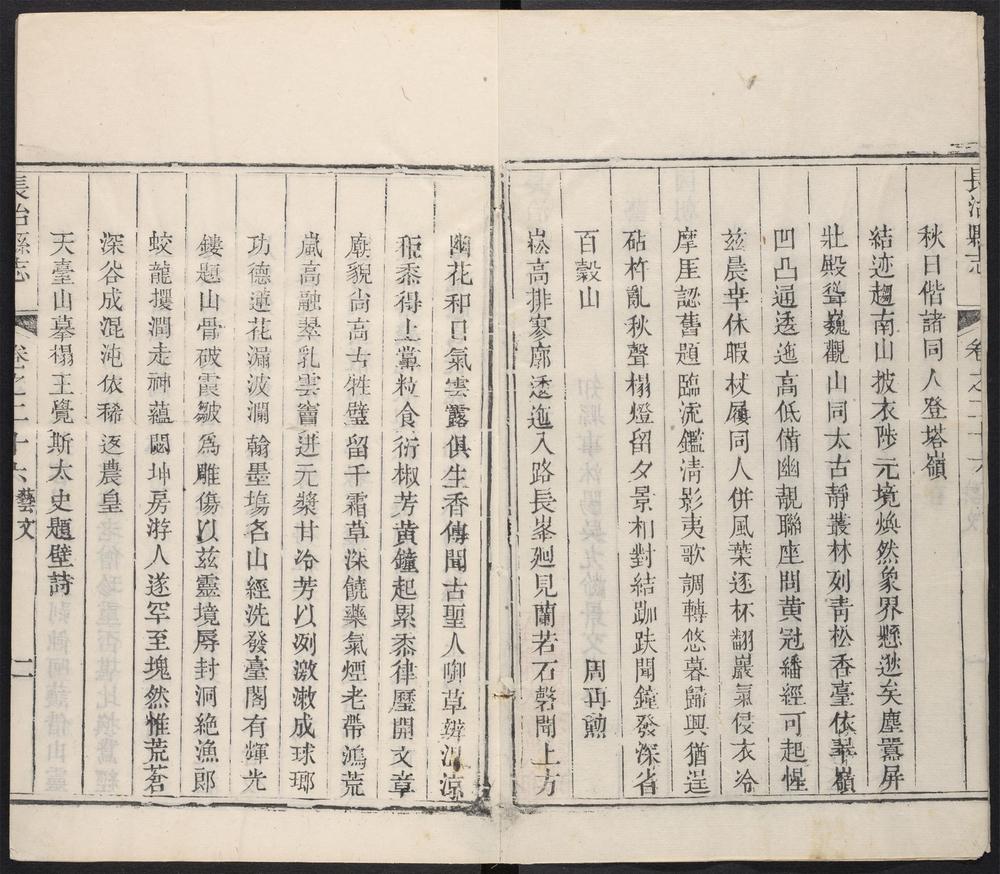 長治縣志
卷之二十六
秋日偕諸同人登塔嶺
結迹趨南山披衣陟元境煥然象界懸逖矣塵囂屏
壯殿聳巍觀山同太古靜叢林列青松香臺依翠嶺
凹凸通透迤高低備幽靚聯座問黃冠繙經可起惺
茲晨幸休暇杖屨同人併風葉逐杯翻巖氣侵衣冷
摩厓認舊題臨流鑑淸影夷歌調轉悠暮歸興猶逞
砧杵亂秋聲榻燈留夕景相對結跏趺聞鐘發深省
百穀山
周再勳
崧高排寥廓透迤入路長峯廻見蘭若石磬聞上方
幽花和日氣雲露俱生香傳聞古聖人啣草辨温凉
秬黍得上黨粒食衍椒芳黃鐘起累黍律厯開文章
廟貌尙高古牲璧留千霜草深饒藥氣煙老帶鴻荒
嵐高融翠乳雲竇迸元漿甘冷芳以洌激漱成球瑯
功德蓮花漏波瀾翰墨塲名山經洗發臺閣有輝光
鏤題山骨破霞皺爲雕傷以兹靈境辱封洞絶漁郎
蛟龍攫澗走神蘊閟坤房游人遂罕至塊然惟荒蒼
深谷成混沌依稀逐農皇
天臺山摹搨王覺斯太史題壁詩
長治縣志
卷之二十六
藝文
二